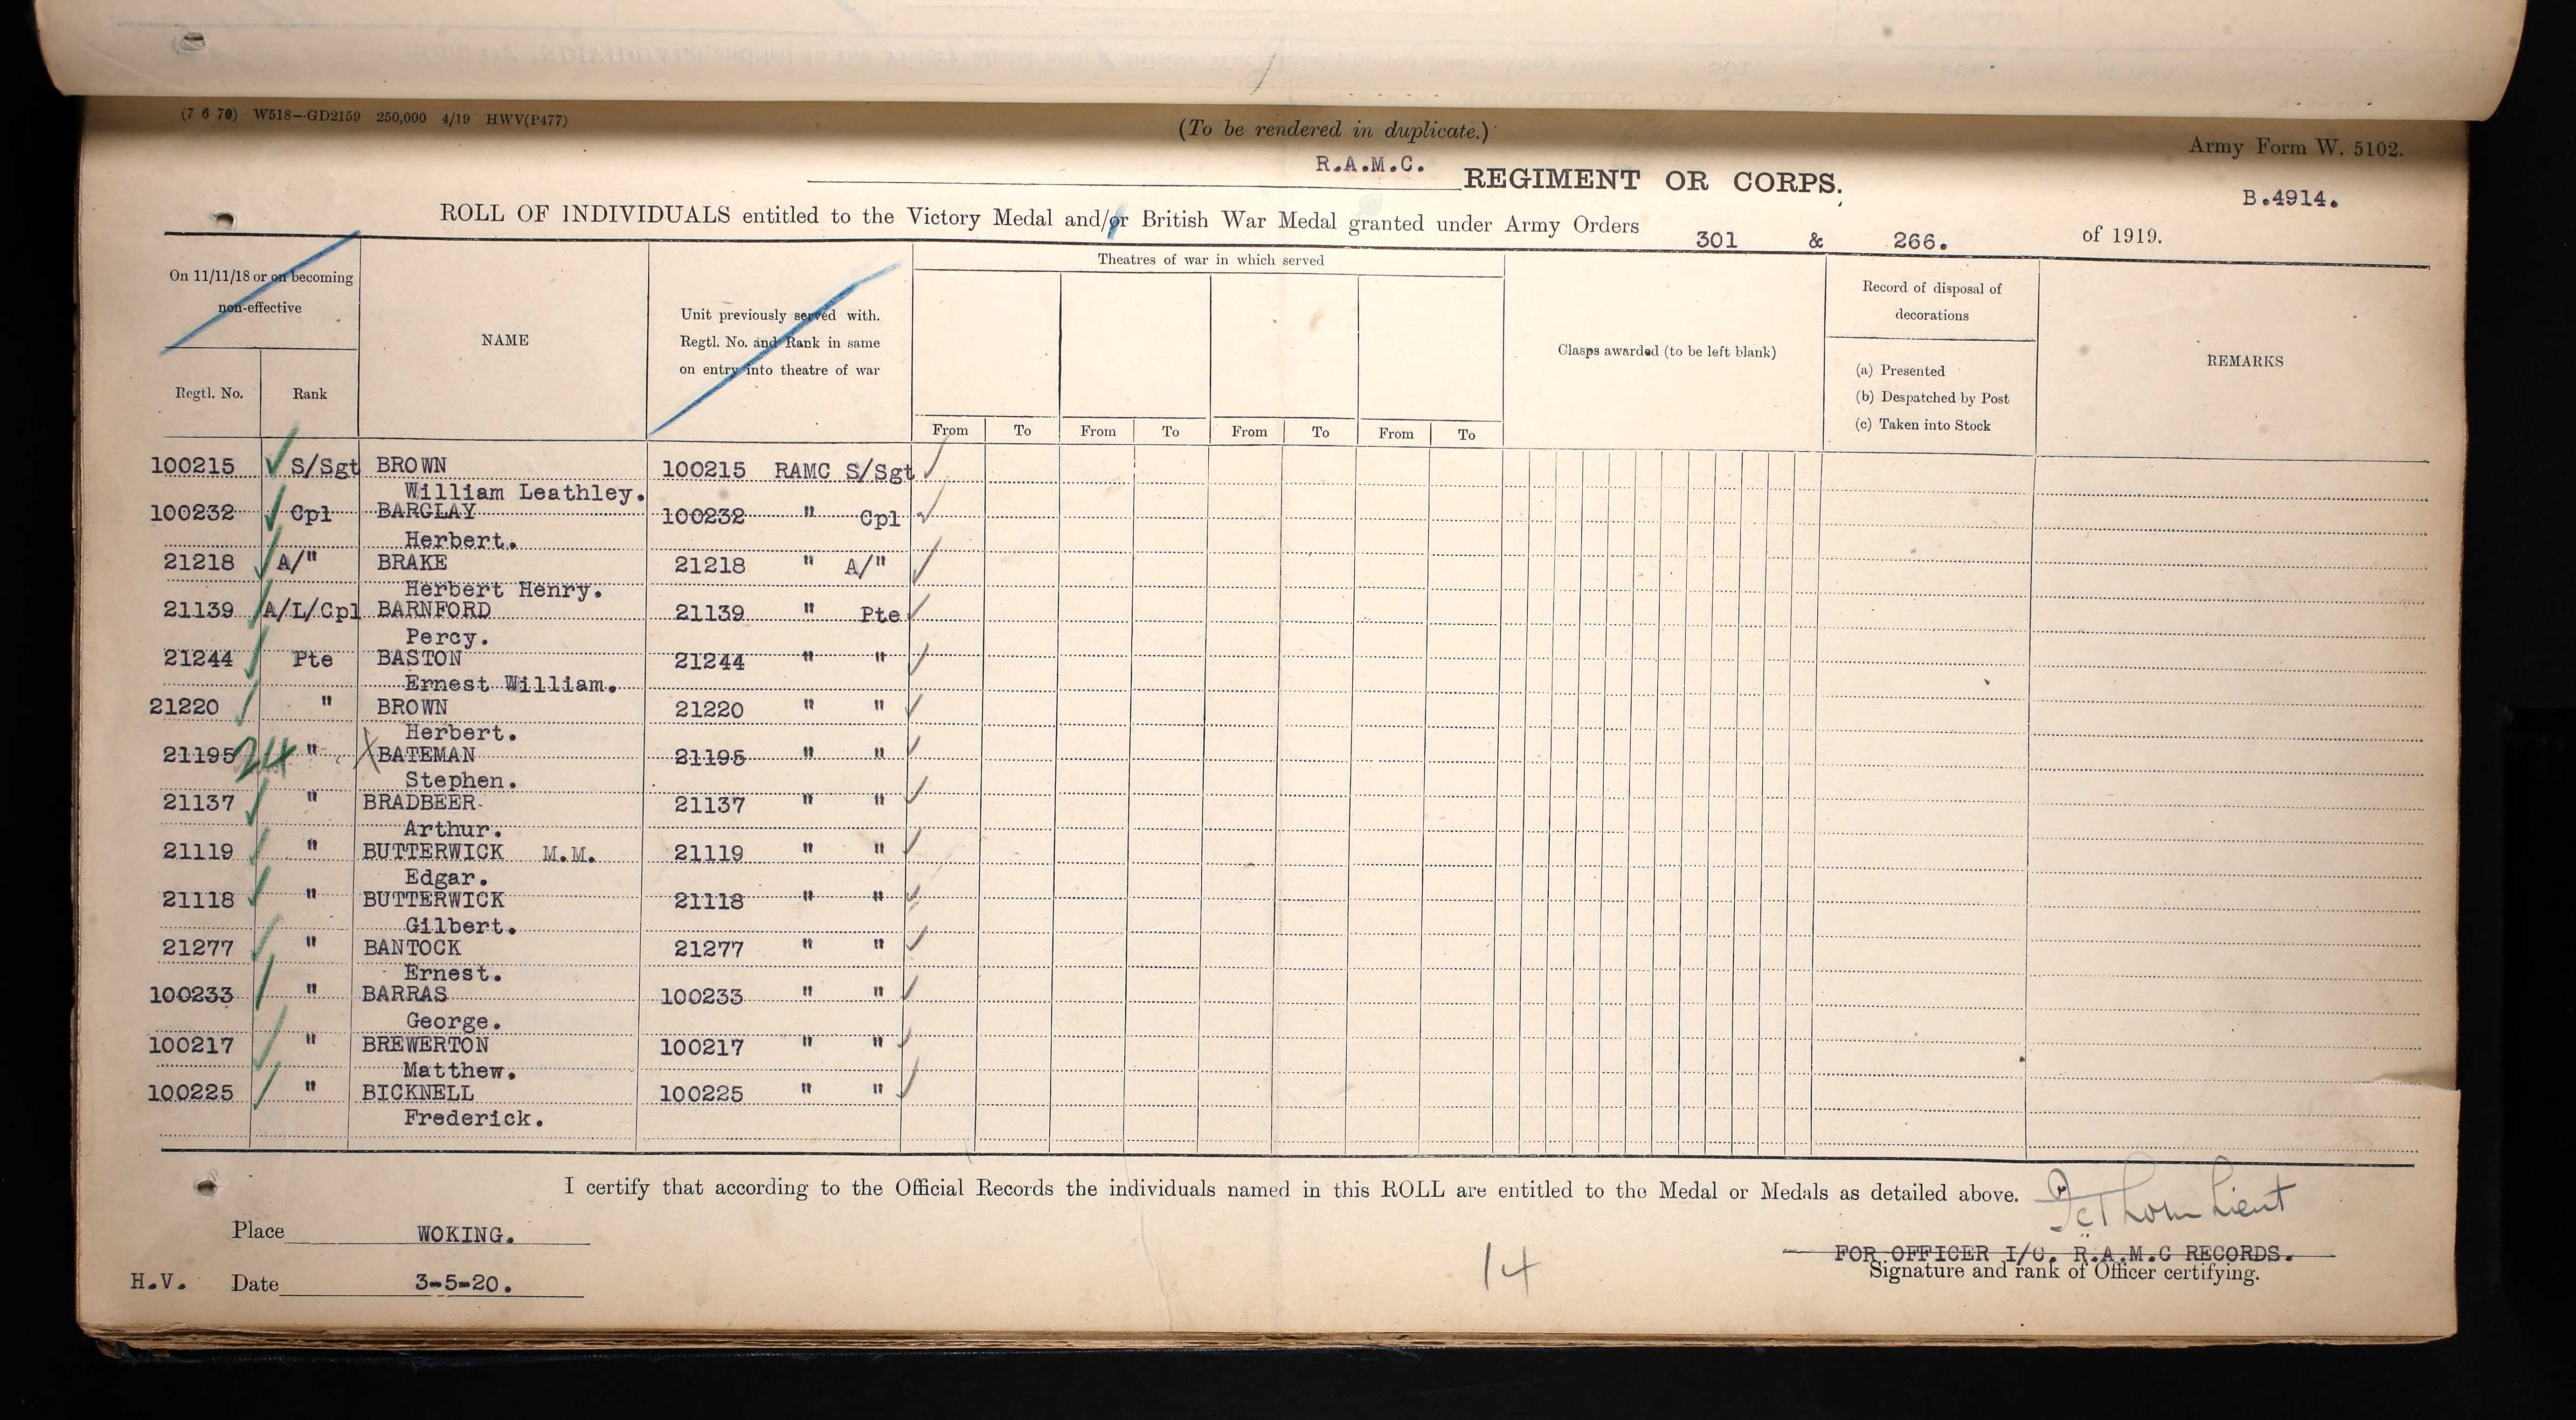 (7 6 70) W518—GD2159 250,000 4/19 HWV(P477)
(To be rendered in duplicate.)
Army Form W. 5102.
R.A.M.C. REGIMENT OR CORPS.
B.4914.
ROLL OF INDIVIDUALS entitled to the Victory Medal and/or British War Medal granted under Army Orders 301 & 266. of 1919.
On 11/11/18 or on becoming
non-effective
Regtl. No. Rank
NAME
Unit previously served with.
Regtl. No. and Rank in same
on entry into theatre of war
Theatres of war in which served
From To From To From To From To
Clasps awarded (to be left blank)
Record of disposal of
decorations
(a) Presented
(b) Despatched by Post
(c) Taken into Stock
REMARKS
100215 S/Sgt BROWN 100215 RAMC S/Sgt
William Leathley.
100232 Cpl BARCLAY 100232 " Cpl
Herbert.
21218 A/" BRAKE 21218 " A/"
Herbert Henry.
21139 A/L/Cpl BARNFORD 21139 " Pte
Percy.
21244 Pte BASTON 21244 " "
Ernest William.
21220 " BROWN 21220 " "
Herbert.
21195 24 " X BATEMAN 21195 " "
Stephen.
21137 " BRADBEER 21137 " "
Arthur.
21119 " BUTTERWICK M.M. 21119 " "
Edgar.
21118 " BUTTERWICK 21118 " "
Gilbert.
21277 " BANTOCK 21277 " "
Ernest.
100233 " BARRAS 100233 " "
George.
100217 " BREWERTON 100217 " "
Matthew.
100225 " BICKNELL 100225 " "
Frederick.
I certify that according to the Official Records the individuals named in this ROLL are entitled to the Medal or Medals as detailed above.
Lieut
Place WOKING.
FOR OFFICER I/C. R.A.M.C RECORDS.
Signature and rank of Officer certifying.
14
H.V. Date 3-5-20.